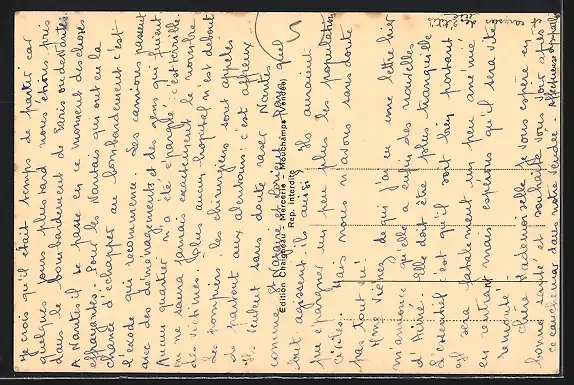 Je crois qu'il était temps de partir car
quelques jours plus tard nous étions pris
dans le bombardement de Paris ou de Nantes.
A Nantes il se passe en ce moment des choses
effrayantes. Pour les Nantais qui ont eu la
chance d'échapper au bombardement c'est
l'exode qui recommence. Les camions passent
avec des déménagements et des gens qui fuient
Aucun quartier n'a été épargné : c'est terrible.
On ne saura jamais exactement le nombre
des victimes. Plus aucun hospital n'est debout
Les pompiers les chirurgiens sont appelés
de partout aux alentours : c'est affreux.
Ils veulent sans doute raser Nantes
comme St Nazaire et Lorient dans quel
but agissent-ils ainsi ? Ils auraient
pu épargner un peu plus les populations
civiles. Mais nous n'avons sans doute
pas tout vu !
Mme Viénez de qui j'ai eu une lettre hier
m'annonce qu'elle a enfin des nouvelles
d'André. Elle doit être plus tranquille
L'essentiel c'est qu'il soit bien portant
Il sera fatalement un peu anémié
en rentrant mais espérons qu'il sera vite
Chère Mademoiselle, je vous espère en
bonne santé et souhaite vous voir après
ce cauchemar dans notre Vendée.
Edition Chaigneau - Mercerie - Mouchamps (Vendée)
Rep. Interdite